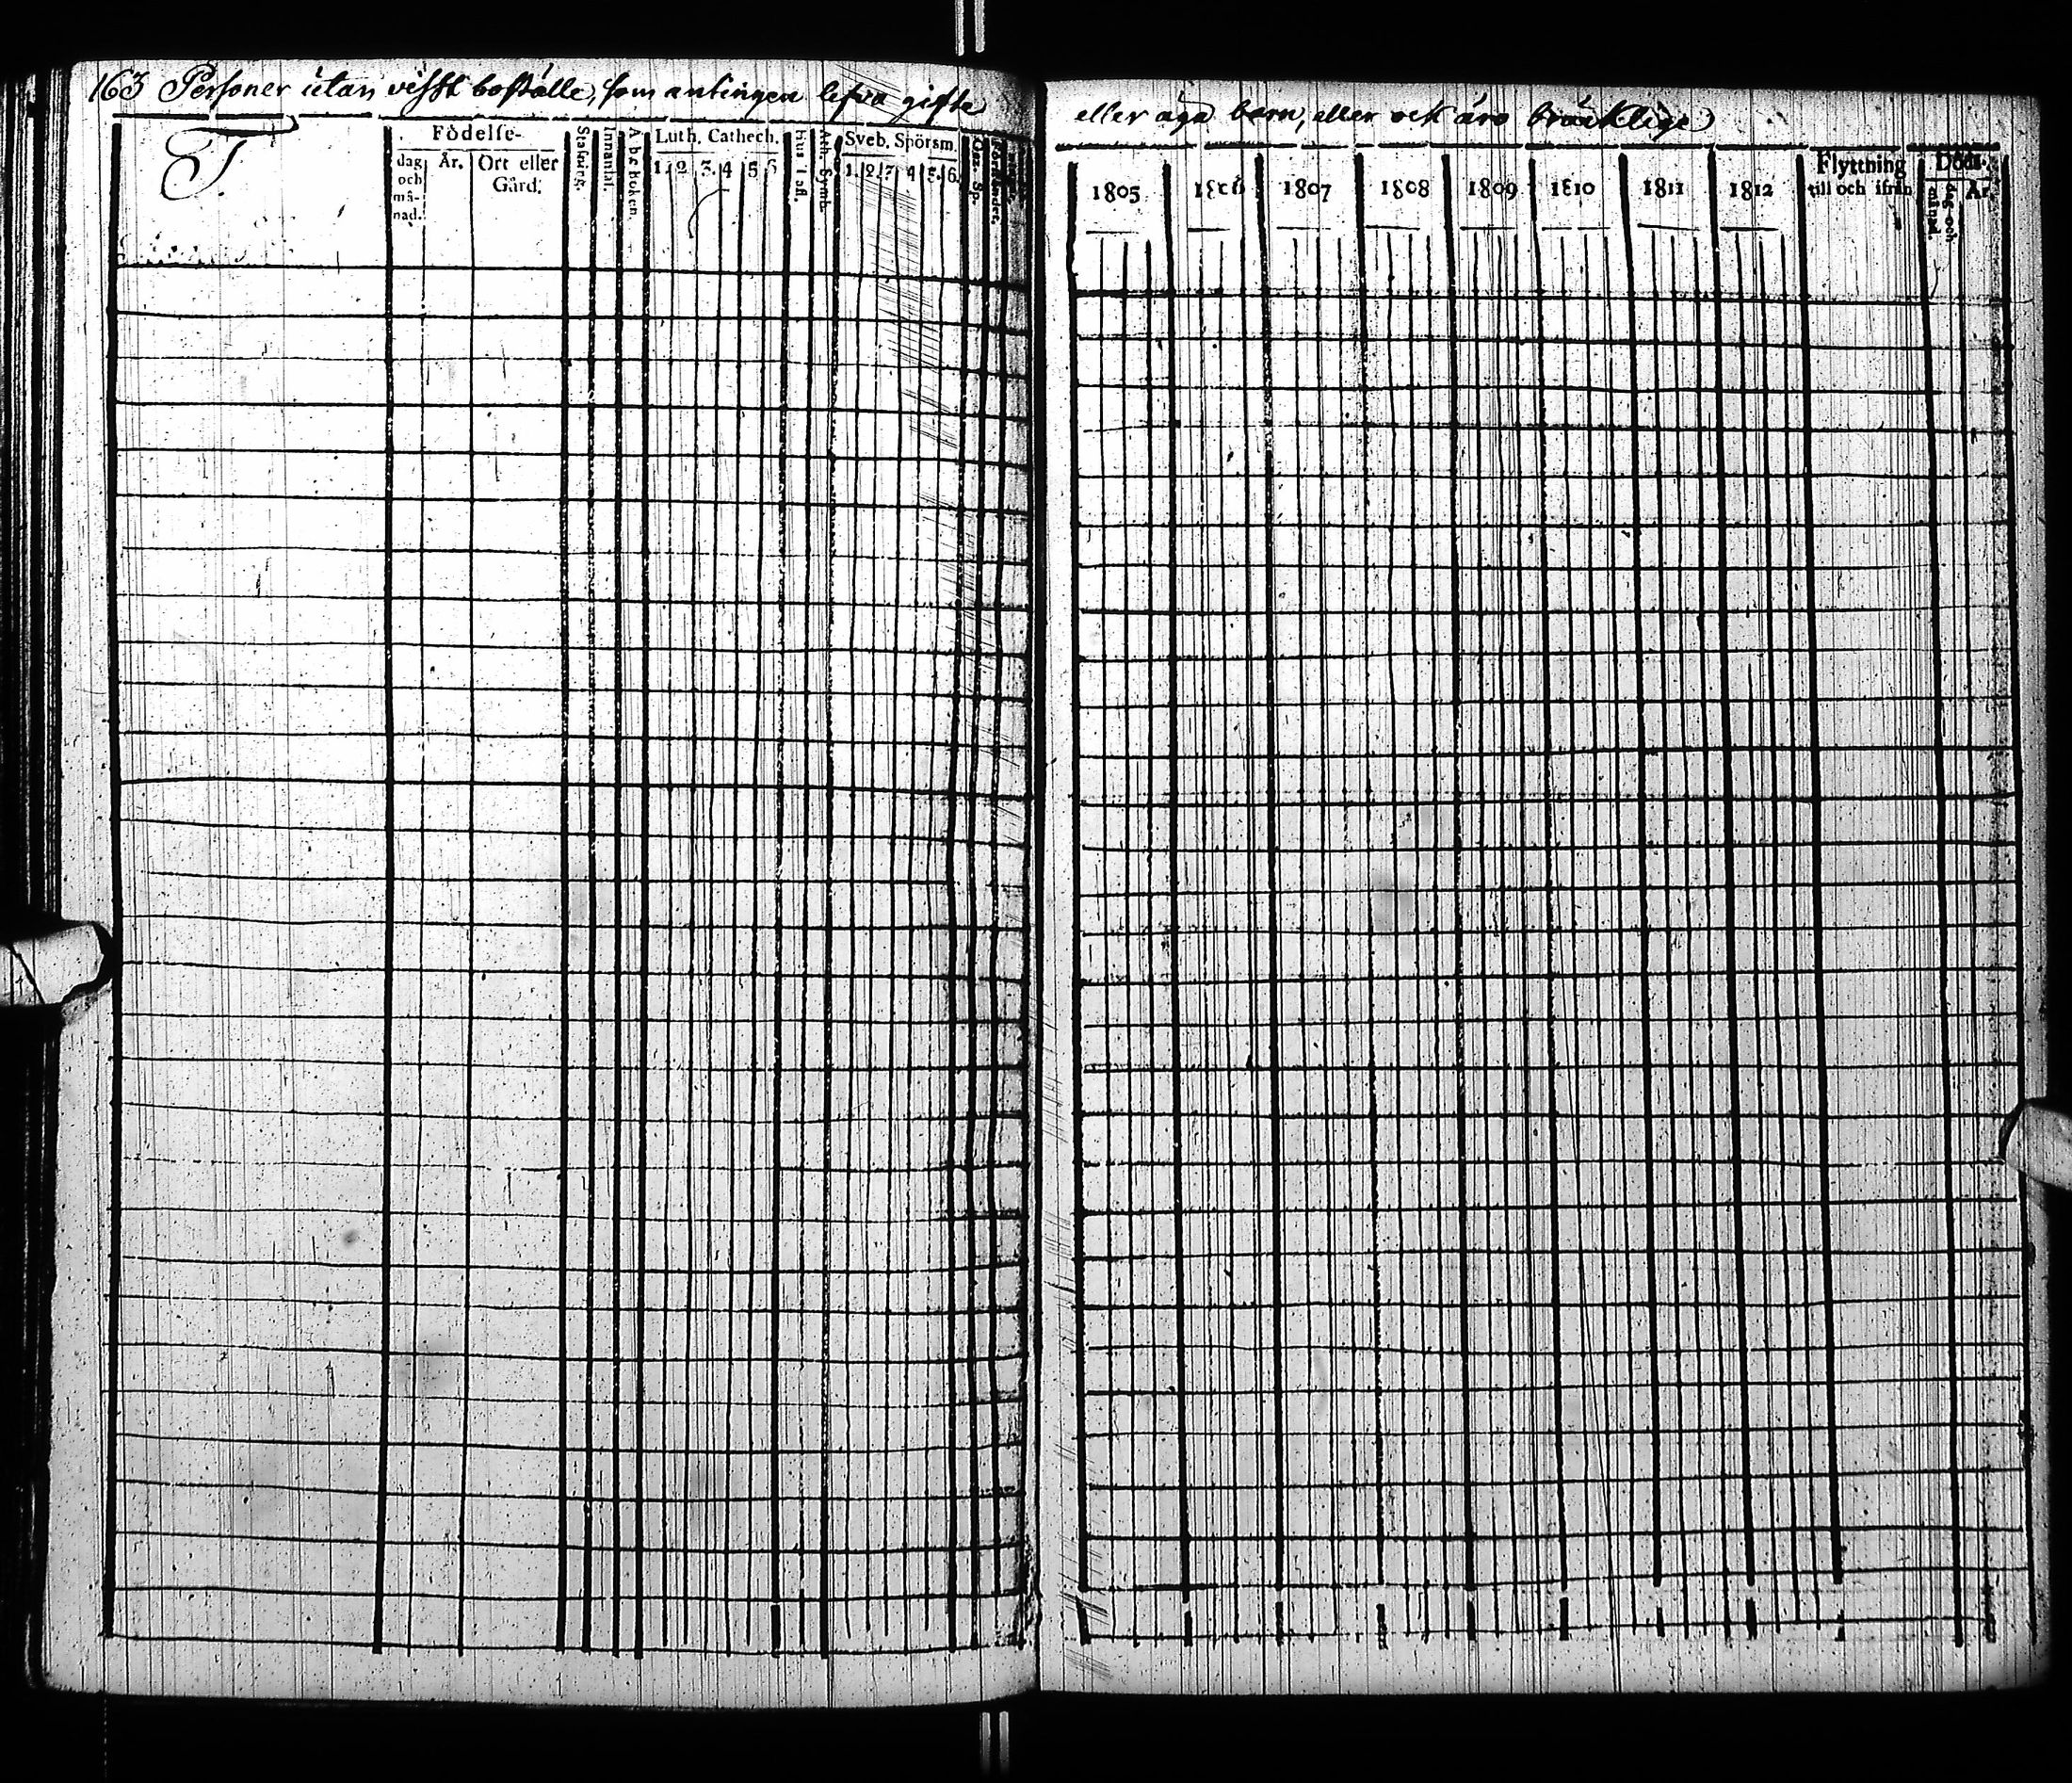 163 Personer utan visst boställe, som antingen lefva gifte
eller äga barn, eller ock äro bräcklige
T.
Födelse-
dag och må-nad.
År.
Ort eller Gård.
Stafning.
Innantal.
A b c boken.
Luth. Cathech.
1. 2 3. 4 5 6
Hus Tafl.
Ath. Symb.
Sveb. Spörsm.
1. 2. 3 4 5. 6.
Förståndet.
1805 1806 1807 1808 1809 1810 1811 1812
Flyttning
till och ifrån
Död.
dag och månad.
År